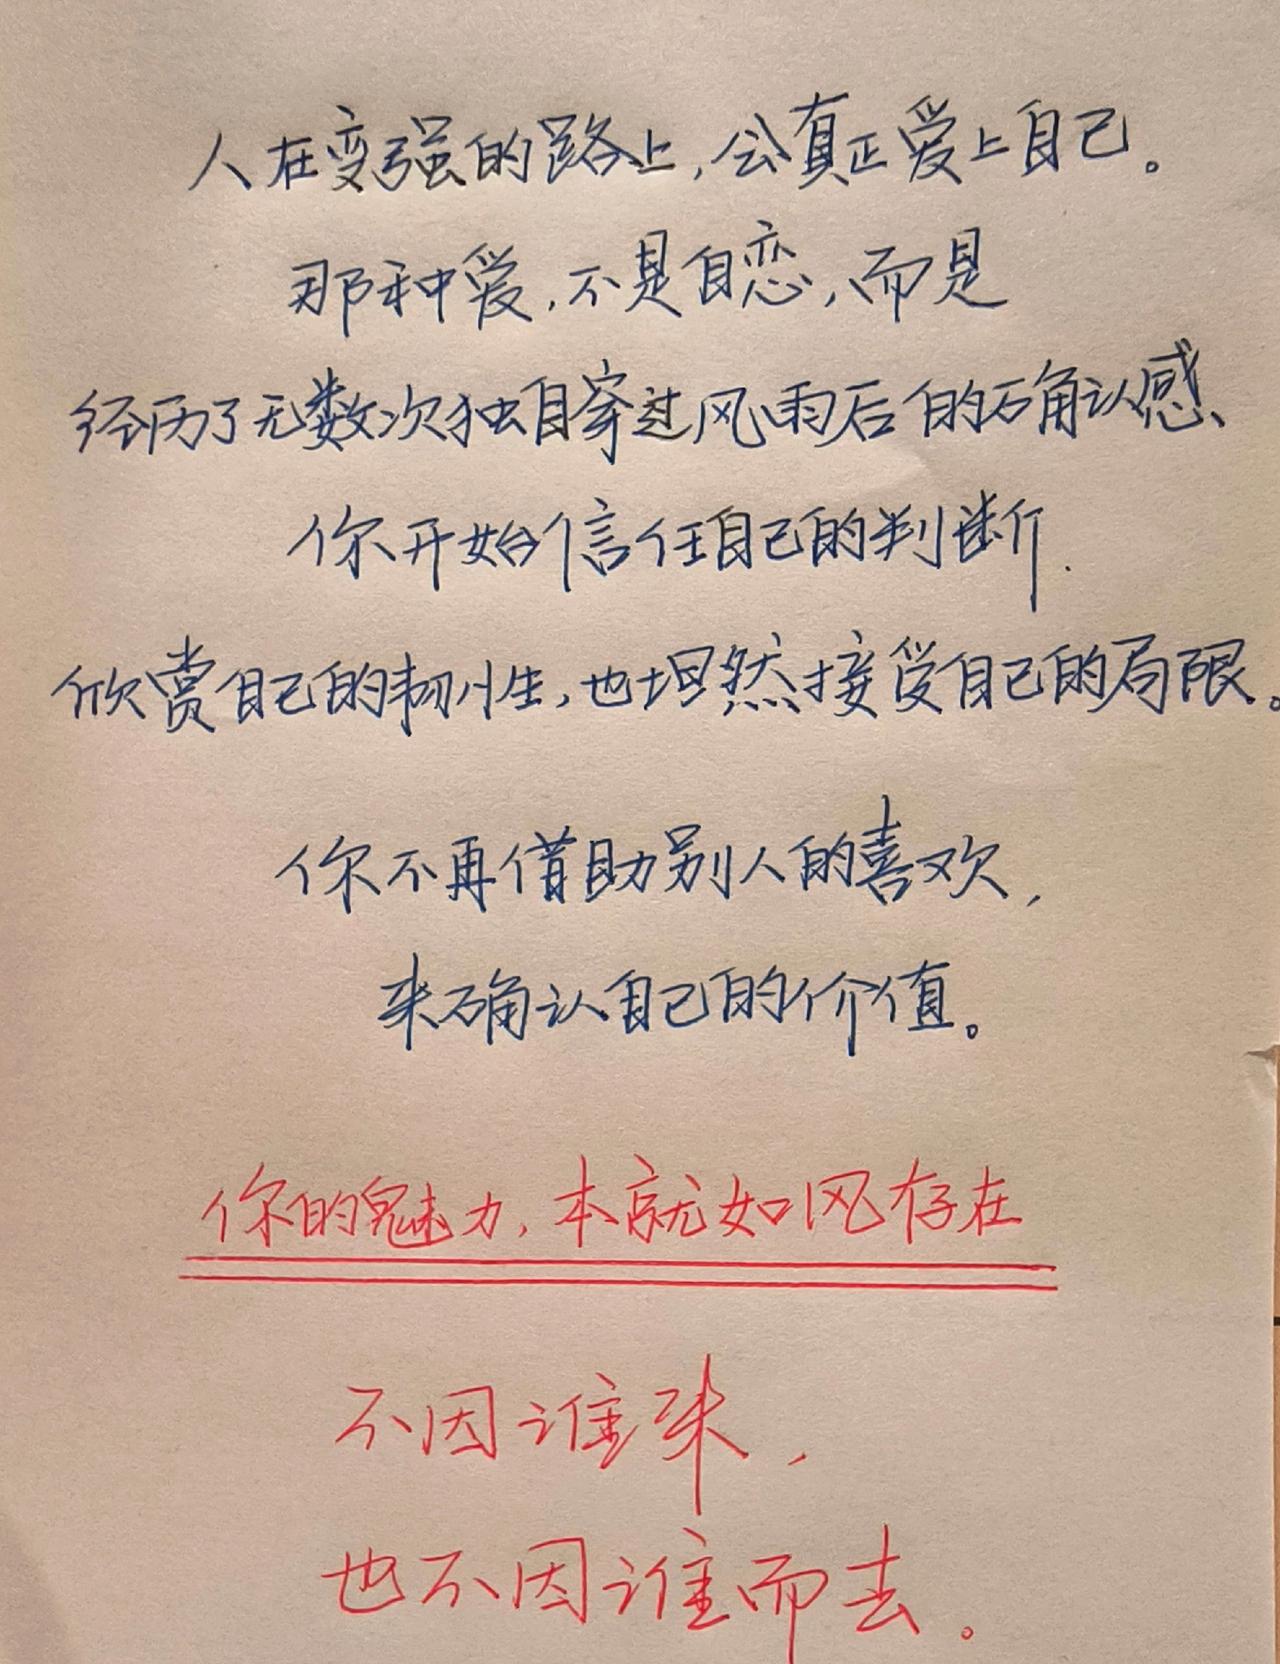 人在变强的路上，会真正爱上自己。
那种爱，不是自恋，而是
经历了无数次独自穿过风雨后的确认感、
你开始信任自己的判断．
欣赏自己的韧性，也坦然接受自己的局限。
你不再借助别人的喜欢，
来确认自己的价值。
你的魅力，本就如风存在
不因谁来，
也不因谁而去。